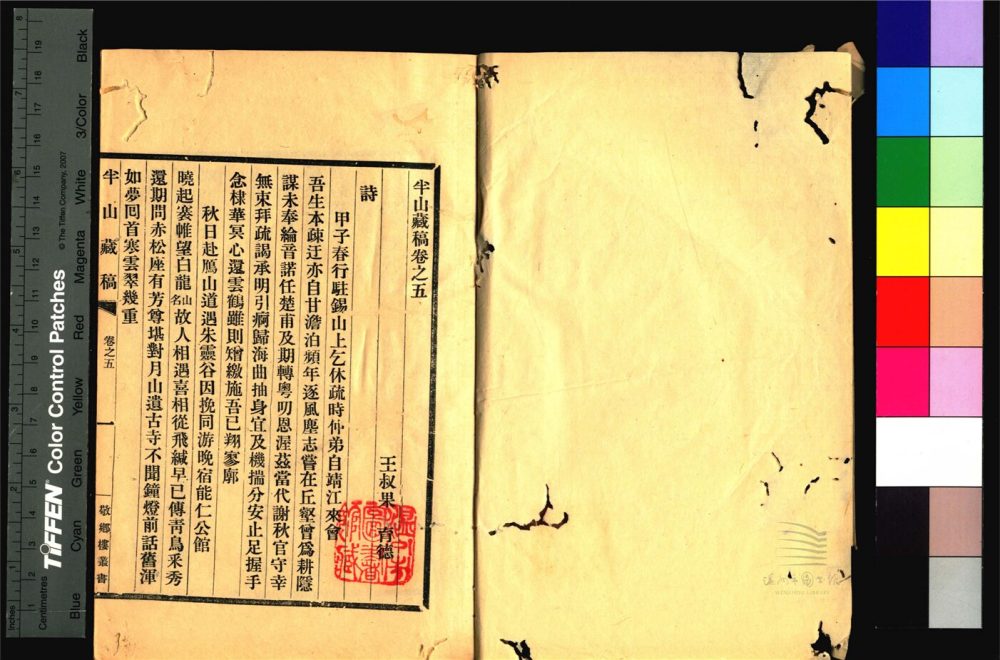 半山藏稿卷之五
王叔果 育德
詩
甲子春行駐錫山上乞休疏時仲弟自靖江來會
吾生本疎迂亦自甘澹泊頻年逐風塵志嘗在丘壑曾爲耕隱
謀未奉綸音諾任楚甫及期轉粤叨恩渥茲當代謝秋官守幸
無束拜疏謁承明引痾歸海曲抽身宜及機揣分安止足握手
念棣華冥心還雲鶴雖則矰繳施吾已翔寥廓
秋日赴鴈山道遇朱靈谷因挽同游晚宿能仁公館
曉起褰帷望白龍山名故人相遇喜相從飛緘早已傳靑鳥采秀
還期問赤松座有芳尊堪對月山遺古寺不聞鐘燈前話舊渾
如夢囘首寒雲翠幾重
半山藏稿
卷之五
敬鄉樓叢書
TIFFEN Color Control Patches
© The Tiffen Company, 2007
Blue Cyan Green Yellow Red Magenta White 3/Color Black
Inches
Centimetres
温州市图书馆
WENZHOU LIBRARY